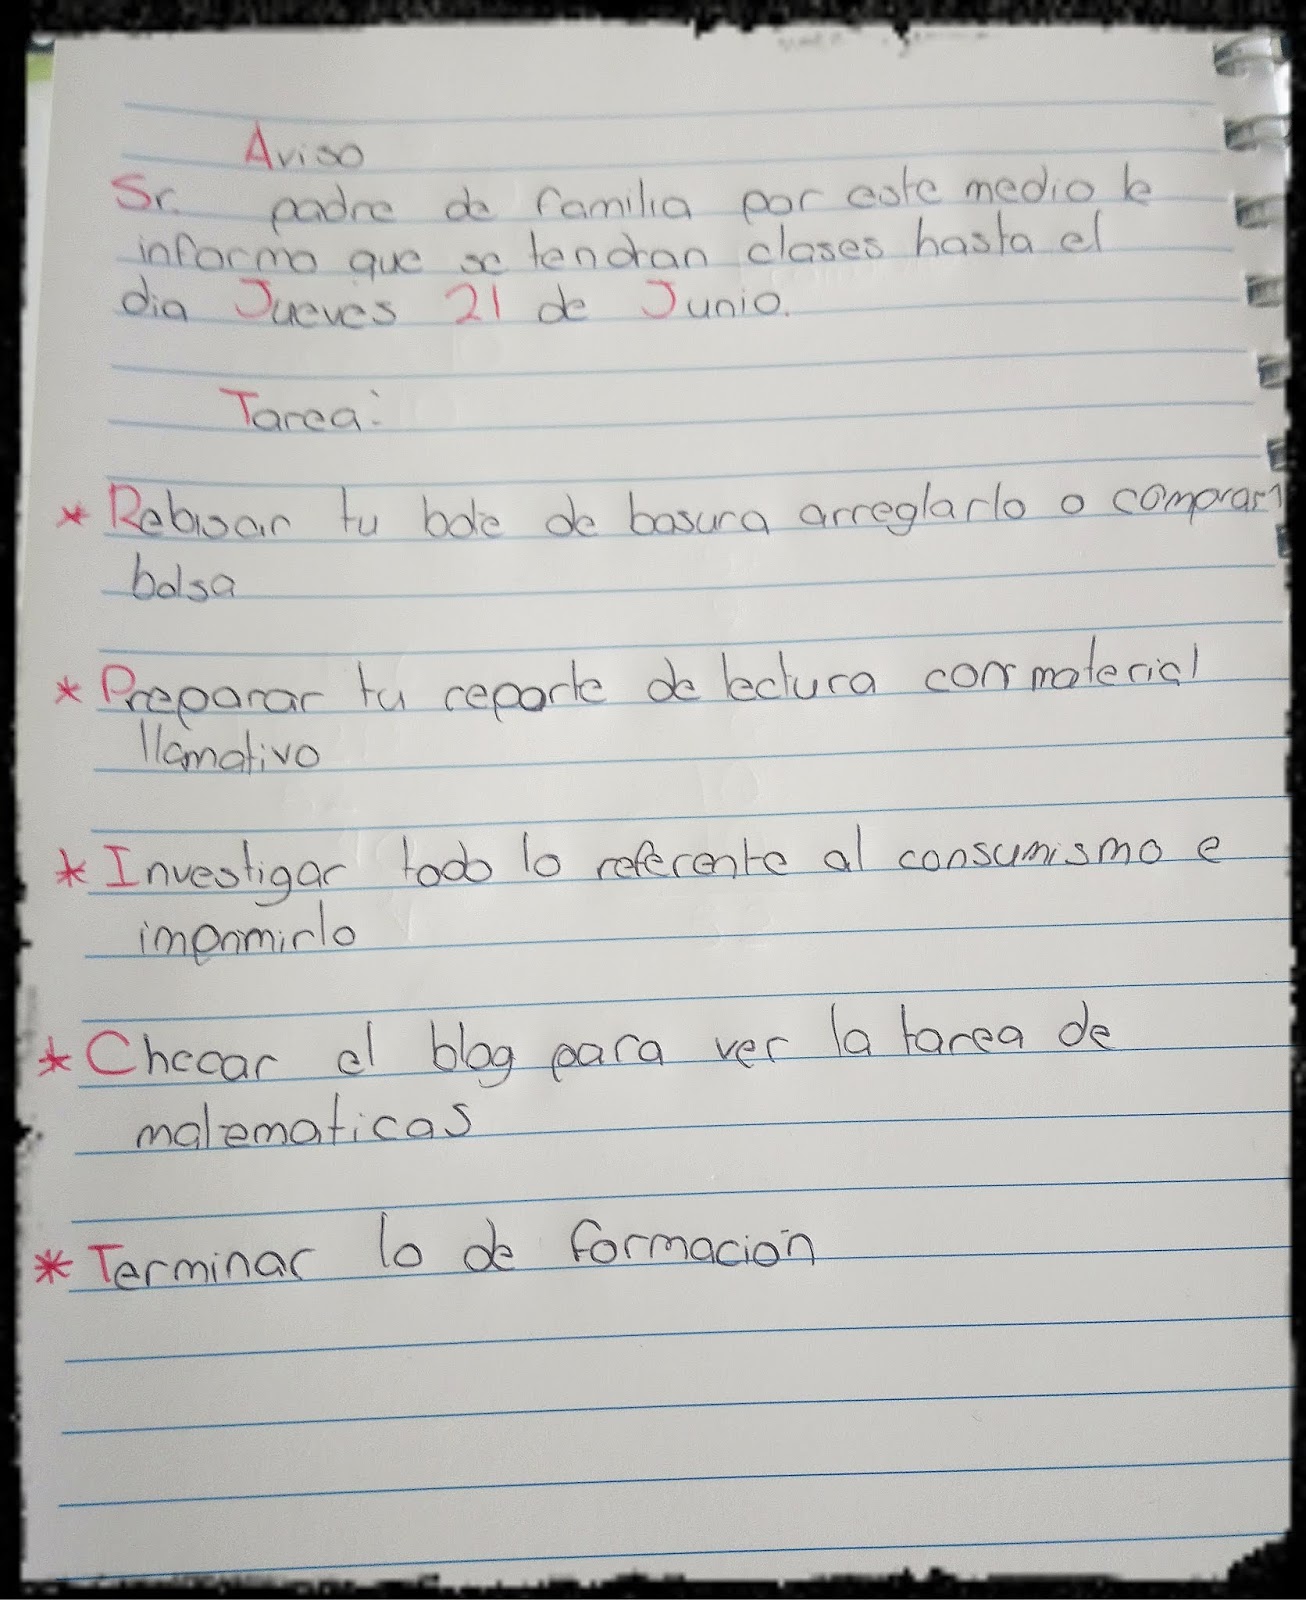 Aviso
Sr. padre de familia por este medio le
informo que se tendran clases hasta el
dia Jueves 21 de Junio.
Tarea:
* Rebisar tu bote de basura arreglarlo o comprar
bolsa
* Preparar tu reporte de lectura con material
llamativo
* Investigar todo lo referente al consumismo e
imprimirlo
* Checar el blog para ver la tarea de
matematicas
* Terminar lo de formación